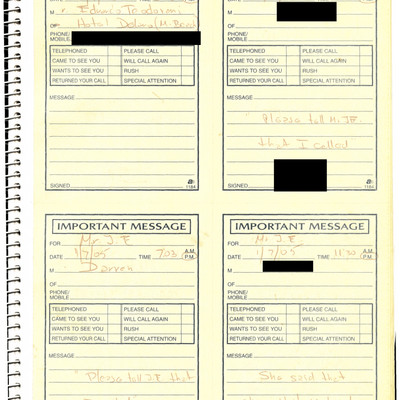 M r. Eduardo Teodorani
OF Hotel Delano (M. Beach)
PHONE/
MOBILE
TELEPHONED PLEASE CALL
CAME TO SEE YOU WILL CALL AGAIN
WANTS TO SEE YOU RUSH
RETURNED YOUR CALL SPECIAL ATTENTION
MESSAGE
SIGNED 1184
M
OF
PHONE/
MOBILE
TELEPHONED PLEASE CALL
CAME TO SEE YOU WILL CALL AGAIN
WANTS TO SEE YOU RUSH
RETURNED YOUR CALL SPECIAL ATTENTION
MESSAGE
Please tell Mr. JE.
that I called
SIGNED 1184
IMPORTANT MESSAGE
FOR Mr. J.E
DATE 1/7/05 TIME 7:03 A.M. P.M.
M Darren
OF
PHONE/
MOBILE
TELEPHONED PLEASE CALL
CAME TO SEE YOU WILL CALL AGAIN
WANTS TO SEE YOU RUSH
RETURNED YOUR CALL SPECIAL ATTENTION
MESSAGE
Please tell J.E that
IMPORTANT MESSAGE
FOR Mr. J.E
DATE 1/7/05 TIME 11:30 A.M. P.M.
M
OF
PHONE/
MOBILE
TELEPHONED PLEASE CALL
CAME TO SEE YOU WILL CALL AGAIN
WANTS TO SEE YOU RUSH
RETURNED YOUR CALL SPECIAL ATTENTION
MESSAGE
She said that